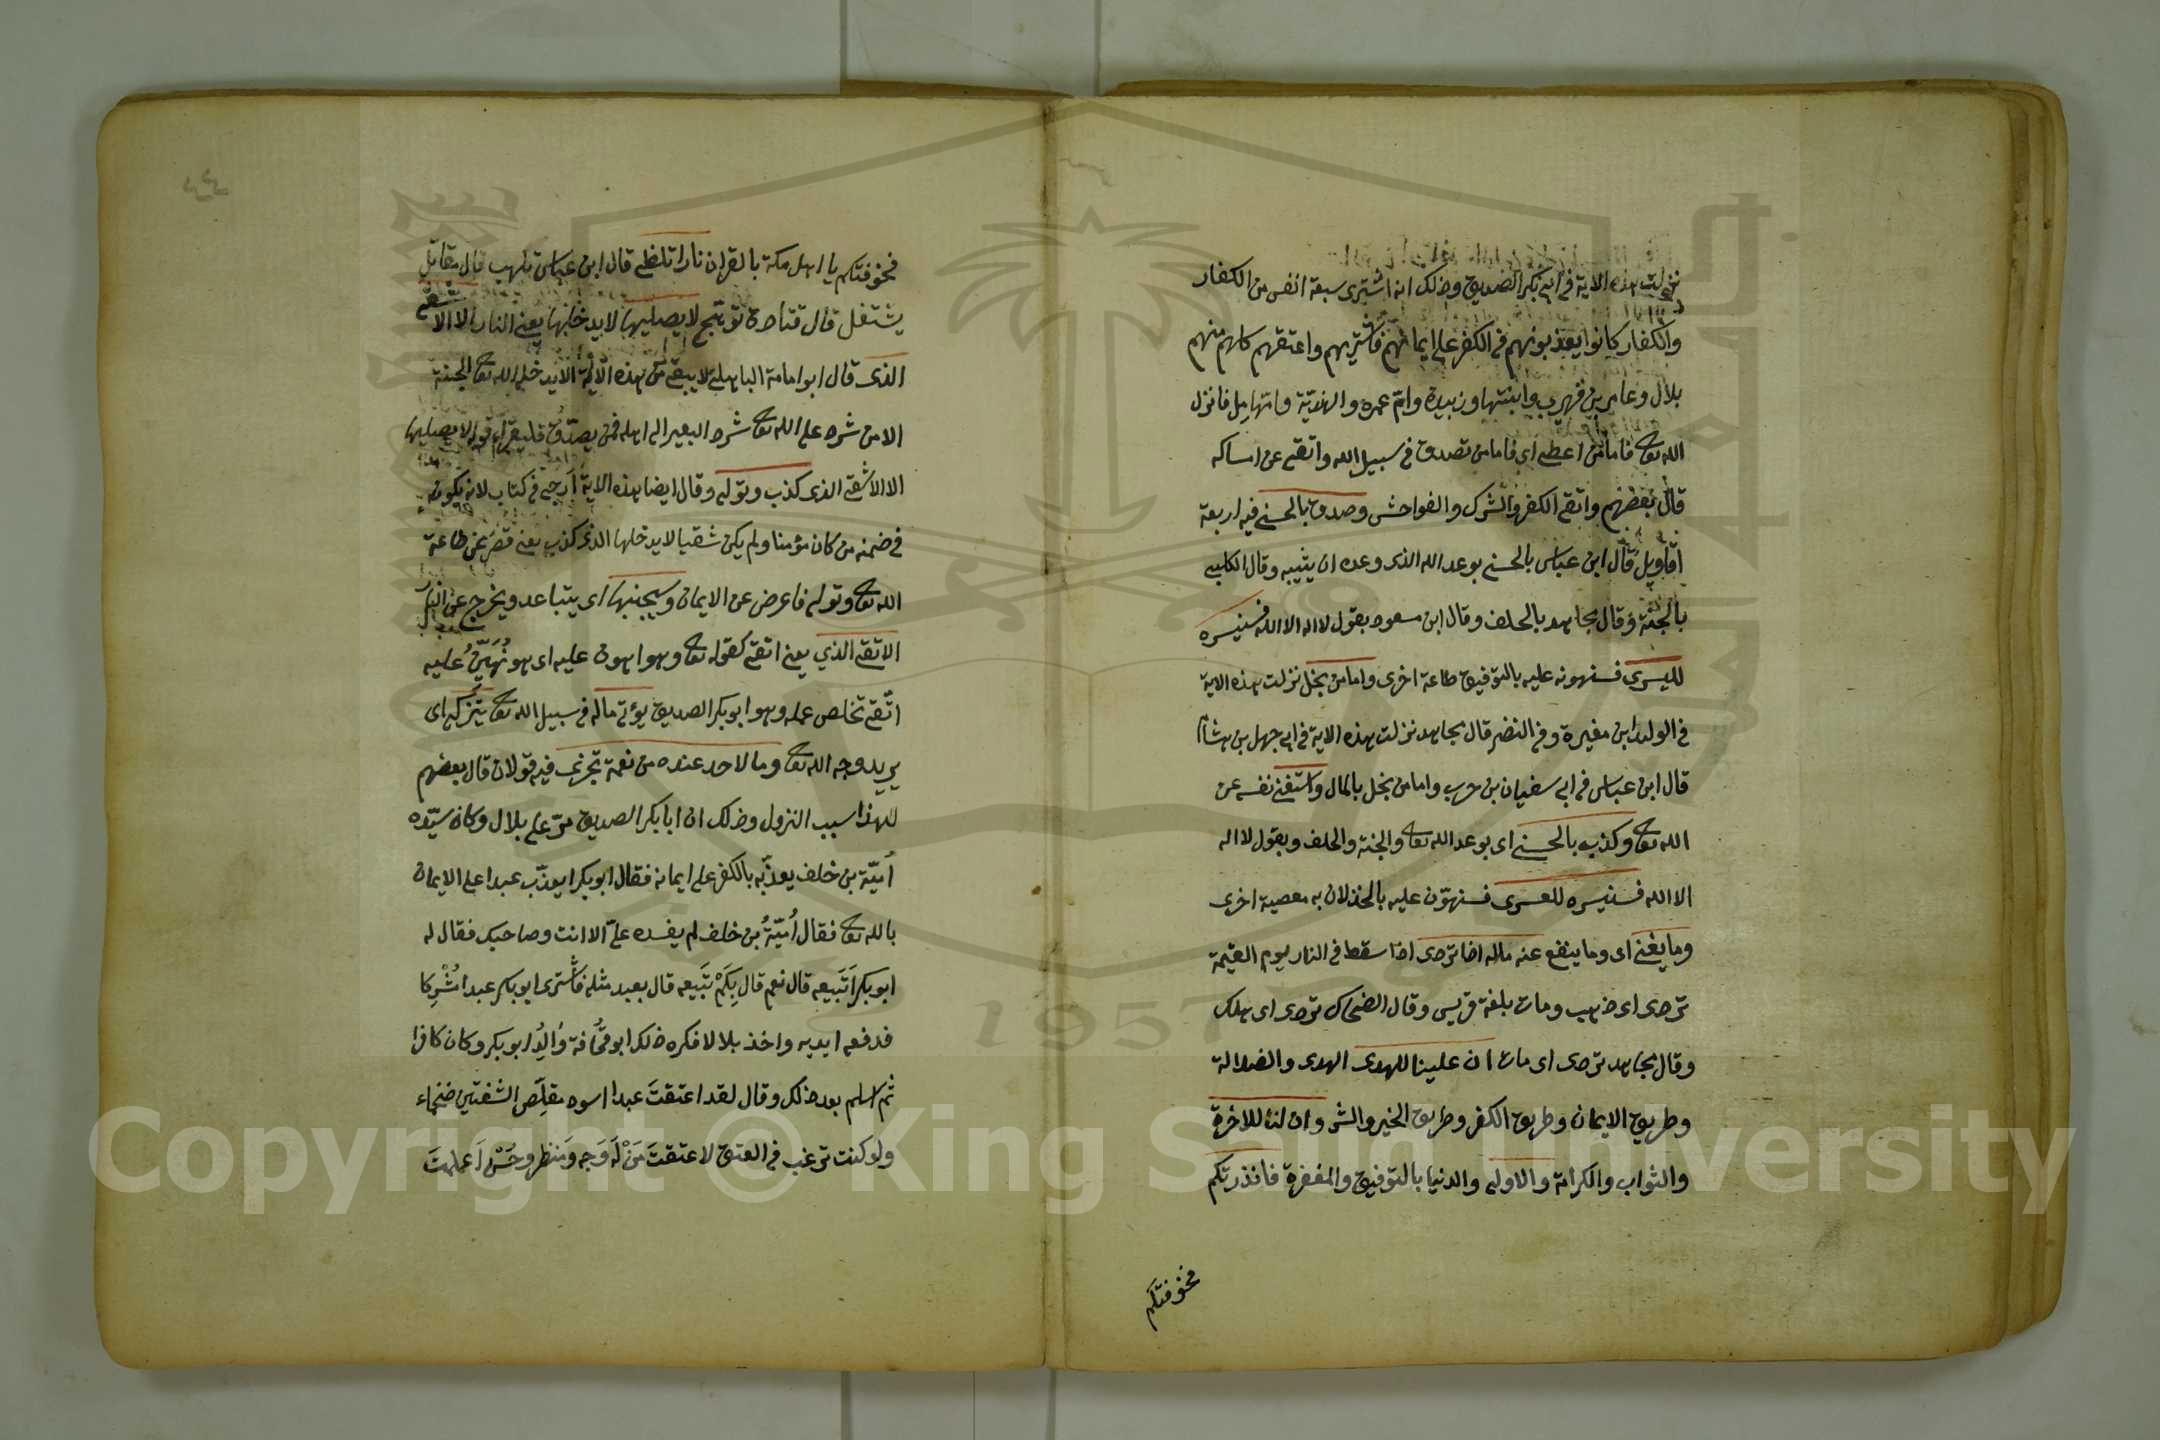 نزلت هذه الاية في ابي بكر الصديق وذلك انه اشترى سبعة انفس من الكفار
والكفار كانوا يعذبونهم في الكفر على ايمانهم فاشتريهم واعتقهم كلهم منهم
بلال وعامر بن فهيرة وابنتها وزبيدة وام عمره والهندية فانزل
الله تعا فاما من اعطى اى فاما من تصدق في سبيل الله واتقى عن امساكه
قال بعضهم واتقى الكفر والشرك والفواحش وصدق بالحسنى فيه اربعة
اقاويل قال ابن عباس بالحسنى بوعد الله الذى وعده ان يثيبه وقال الكلبي
بالجنة وقال مجاهد بالخلف وقال ابن مسعود بقول لا اله الا الله فسنيسره
لليسرى فسنهونه عليه بالتوفيق طاعة اخرى واما من بخل نزلت هذه الاية
في الوليد ابن مغيرة وفى النضر قال مجاهد نزلت هذه الاية في ابى جهل بن هشام
قال ابن عباس في ابى سفيان بن حرب واما من بخل بالمال واستغنى نفسه عن
الله تعا وكذب بالحسنى اى بوعد الله تعا والجنة والخلف وبقول لا اله
الا الله فسنيسره للعسرى فسنهون عليه بالخذلان به معصية اخرى
وما يغنى اى وما ينفع عنه ماله اذا تردى اذا سقط في النار يوم القيمة
تردى اى ذهب ومات بلغة قريس وقال الضحاك تردى اى هلك
وقال مجاهد تردى اى مات ان علينا للهدى الهدى والضلالة
وطريق الايمان وطريق الكفر وطريق الخير والشر وان لنا للاخرة
والثواب والكرامة والاولى والدنيا بالتوفيق والمغفرة فانذرتكم
فخوفتكم
فخوفتكم يا اهل مكة بالقران نارا تلظى قال ابن عباس تلهب قال مقاتل
يشتغل قال قتادة توهج لا يصليها لا يدخلها يعنى النار الا الاشقى
الذى قال ابو امامة الباهلى لا يبقى من هذه الامة الا يدخله الله تعا الجنة
الا من شرد على الله تعا شرد البعير الى اهله فمن يصدق فليقراء قوله لا يصليها
الا الاشقى الذى كذب وتولى وقال ايضا هذه الاية ارجى في كتاب لانه يكون
في ضمنه من كان مؤمنا ولم يكن شقيا لا يدخلها الذى كذب يعنى قصر عن طاعة
الله تعا وتولى فاعرض عن الايمان وسيجنبها اى يتباعد ويخرج عن النار
الاتقى الذي يعنى اتقى كقوله تعا وهو اهون عليه اى هو هين عليه
اتقى تخلص عمله وهو ابو بكر الصديق يؤتى ماله في سبيل الله تعا يتزكى اى
يريد وجه الله تعا وما لاحد عنده من نعمة تجزى فيه قولان قال بعضهم
لهذا سبب النزول وذلك ان ابا بكر الصديق مر على بلال وكان سيده
اميّة بن خلف يعذبه بالكفر على ايمانه فقال ابو بكر ايعذب عبدا على الايمان
بالله تعا فقال اُميّةُ بن خلف لم يفسده علىّ الا انت وصاحبك فقال له
ابو بكر اَتَبيعه قال نعم قال بِكَمْ تَبيعه قال بعبد مثله فاشترى ابو بكر عبدا مُشْرِكا
فدفعه اليه واخذ بلالا فكره ذلك ابو قحافة والد ابو بكر وكان كافرا
ثم اسلم بعد ذلك وقال لقد اعتقتَ عبدا اسود مقلّص الشفتين
ولو كنت ترغب في العتق لاعتقتَ مَنْ لَه وَجه ومَنظر وحسْن اَعلمتَ
Copyright © King Saud University
1957